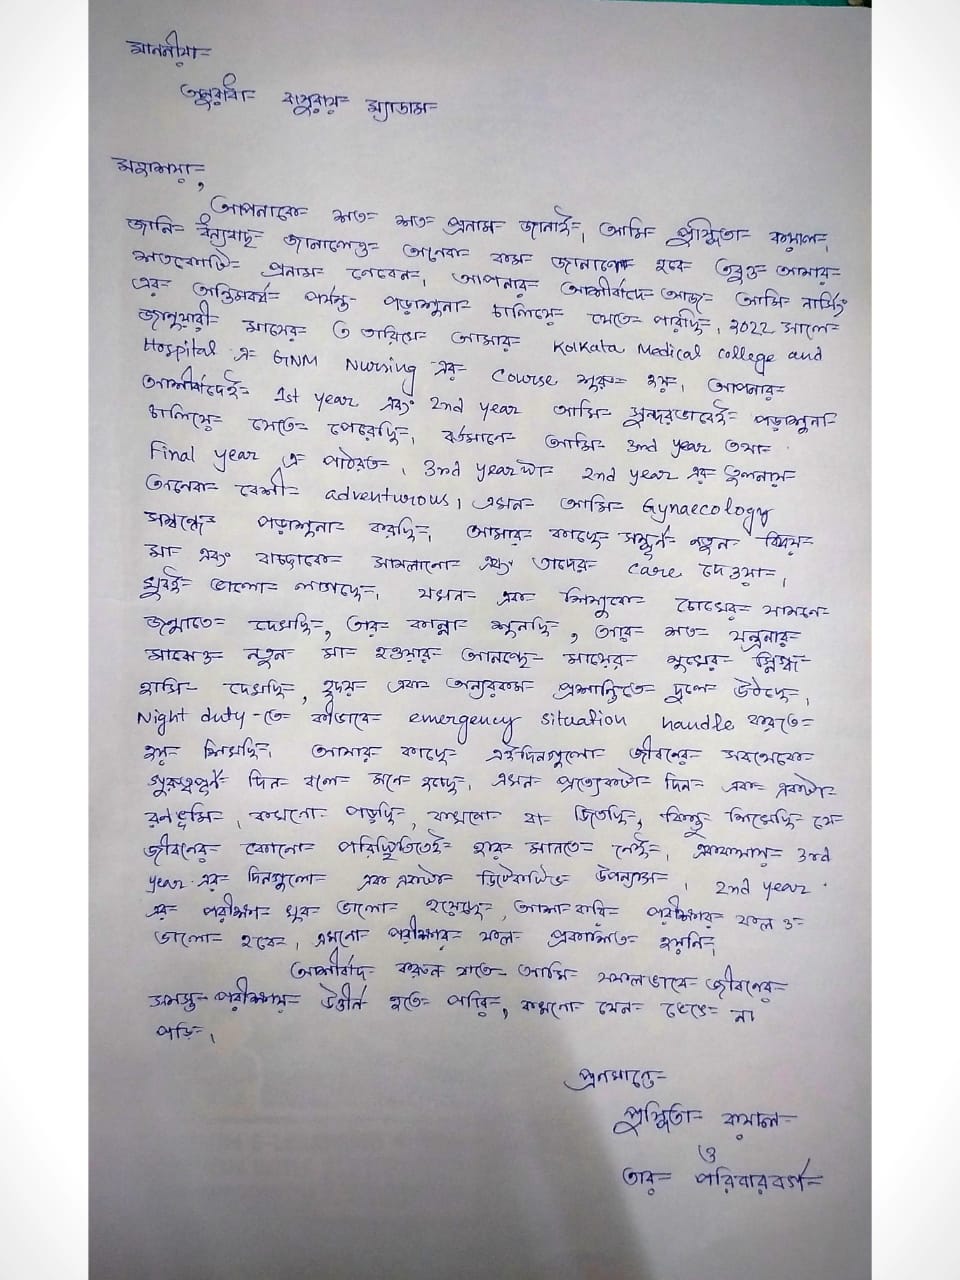 মাননীয়া
অনুরাধা বাসুরায় ম্যাডাম
মহাশয়া,
আপনাকে শত শত প্রনাম জানাই। আমি প্রস্মিতা কয়াল।
জানি ধন্যবাদ জানালেও অনেক কম জানানো হবে তবুও আমার
শতকোটি প্রনাম নেবেন। আপনার আশীর্বাদে আজ আমি নার্সিং
এর অন্তিমবর্ষ পর্যন্ত পড়াশুনা চালিয়ে যেতে পারছি। 2022 সালে
জানুয়ারী মাসের ৩ তারিখে আমার Kolkata Medical college and
Hospital এ GNM Nursing এর Course শুরু হয়। আপনার
আশীর্বাদেই 1st year এবং 2nd year আমি সুন্দরভাবেই পড়াশুনা
চালিয়ে যেতে পেরেছি। বর্তমানে আমি 3rd year তথা
Final year এ পাঠরত। 3rd yearটা 2nd year এর তুলনায়
অনেক বেশী adventurous। এখন আমি Gynaecology
সম্বন্ধে পড়াশুনা করছি। আমার কাছে সম্পূর্ন নতুন বিষয়
মা এবং বাচ্চাকে সামলানো এবং তাদের care দেওয়া।
খুবই ভালো লাগছে। যখন এক শিশুকে চোখের সামনে
জন্মাতে দেখছি, তার কান্না শুনছি, আর শত যন্ত্রনার
মাঝেও নতুন মা হওয়ার আনন্দে মায়ের মুখের স্নিগ্ধ
হাসি দেখছি, হৃদয় এক অন্যরকম প্রশান্তিতে দুলে উঠছে।
Night duty-তে কীভাবে emergency situation handle করতে
হয় শিখছি। আমার কাছে এইদিনগুলো জীবনের সবথেকে
গুরুত্বপূর্ন দিন বলে মনে হচ্ছে। এখন প্রত্যেকটা দিন এক একটা
রনভূমি। কখনো পড়ছি, কখনো বা জিতছি, কিন্তু শিখেছি যে
জীবনের কোনো পরিস্থিতিতেই হার মানতে নেই। এককথায় 3rd
year এর দিনগুলো এক একটা ডিটেকটিভ উপন্যাস। 2nd year
এর পরীক্ষা খুব ভালো হয়েছে, আশা করি পরীক্ষার ফল ও
ভালো হবে। এখনো পরীক্ষার ফল প্রকাশিত হয়নি।
আশীর্বাদ করুন যাতে আমি সফলভাবে জীবনের
সমস্ত পরীক্ষায় উত্তীর্ন হতে পারি, কখনো যেন ভেঙে না
পড়ি।
প্রনমান্তে
প্রস্মিতা কয়াল
ও
তার পরিবারবর্গ